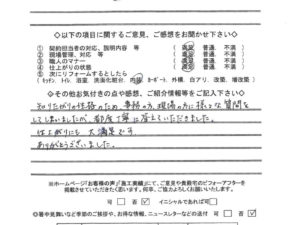 ◇以下の項目に関するご意見、ご感想をお聞かせ下さい◇
① 契約担当者の対応、説明内容 等 ( 満足 普通、不満 )
② 現場管理、対応 等 ( 満足 普通、不満 )
③ 職人のマナー ( 満足 普通、不満 )
④ 仕上がりの状態 ( 満足 普通、不満 )
⑤ 次にリフォームするとしたら
(キッチン、トイレ、浴室、洗面化粧台、内装、カーポート、外構、白アリ、改築、増改築)
◇その他お気付きの点や感想、ご紹介情報等をご記入下さい◇
知りたがりの性格のため、事務の方、現場の方に様々な質問を
してしまいましたが、都度丁寧に答えていただきました。
仕上がりにも大満足です。
ありがとうございました。
※ホームページ「お客様の声」「施工実績」にて、ご意見や貴殿宅のビフォーアフターを
掲載させていただきたく思います。何卒、ご協力よろしくお願いいたします。
可 □ 否 ☑ イニシャルであれば可 □
◎暑中見舞いなど季節のご挨拶や、お得な情報、ニュースレターなどの送付 可 □ 否 ☑